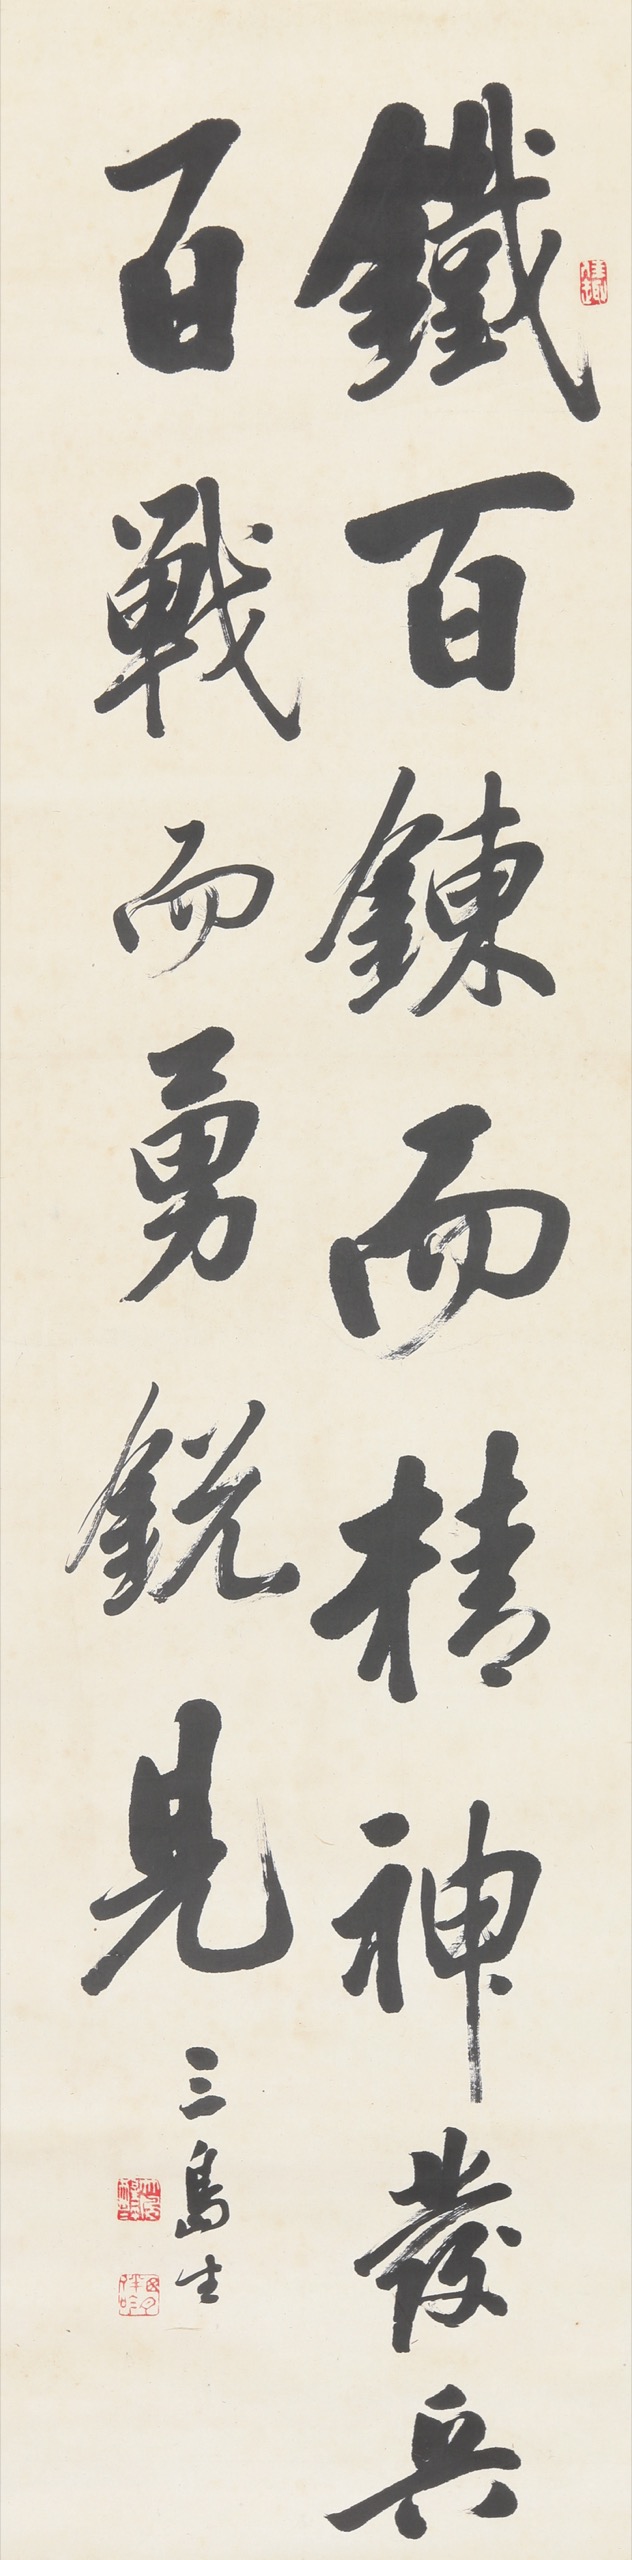 鐵百錬而精神發兵
百戰而勇銳見
三島生